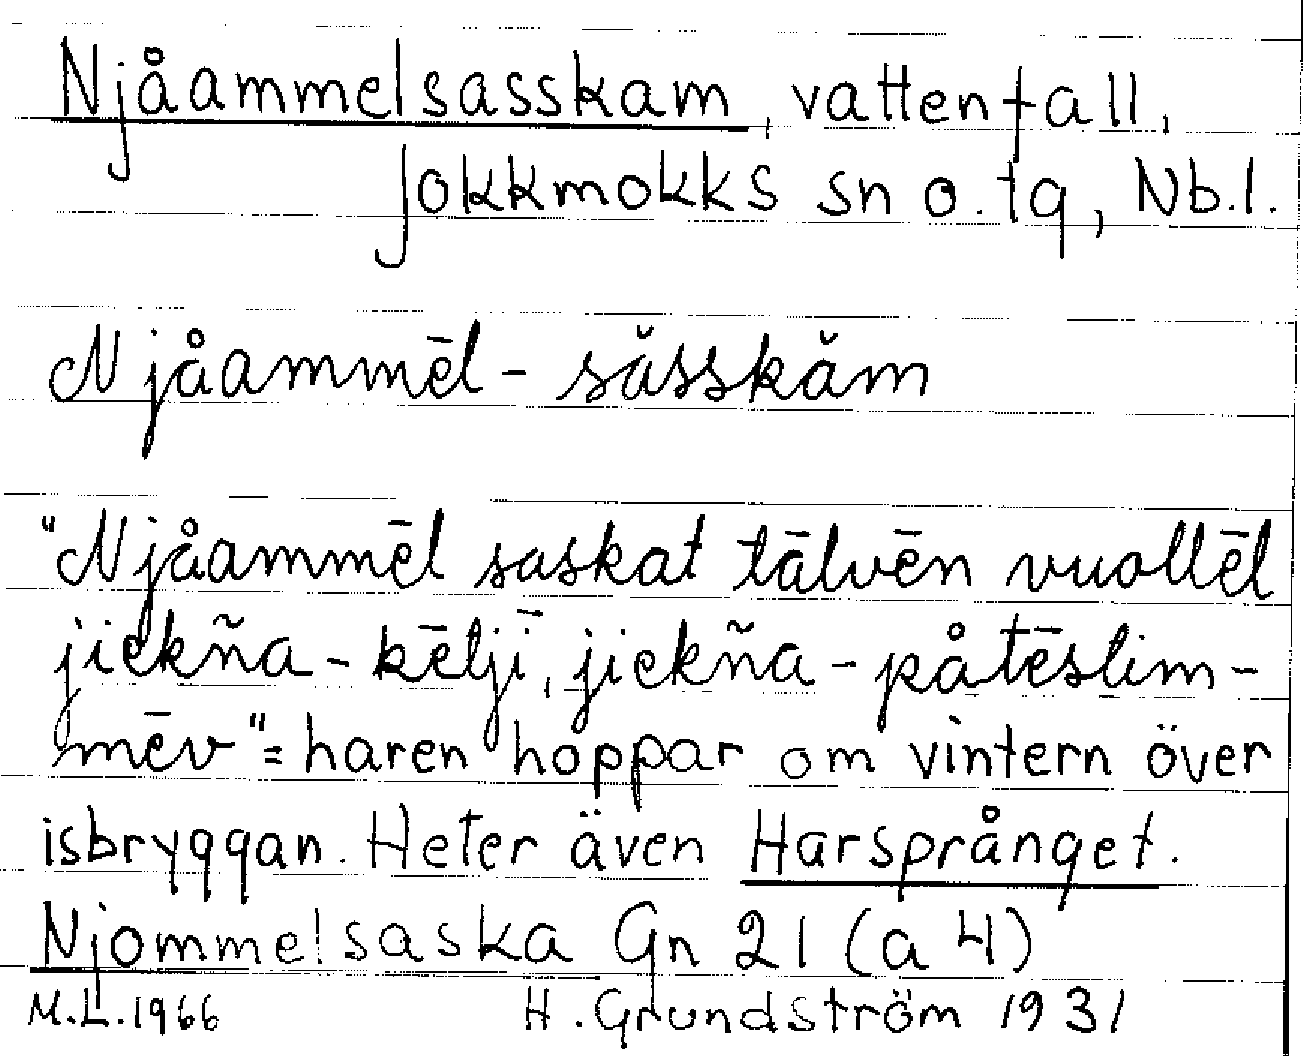 Njåammelsasskam, vattenfall,
Jokkmokks sn o. tg, Nb.l.
Njåammēl-săsskăm
"Njåammēl saskat tālvēn vuollēl
jiekña-kēljī, jiekña-påtēslim-
mēv" = haren hoppar om vintern över
isbryggan. Heter även Harsprånget.
Njommelsaska Gn 21 (a 4)
M.L. 1966 H. Grundström 1931